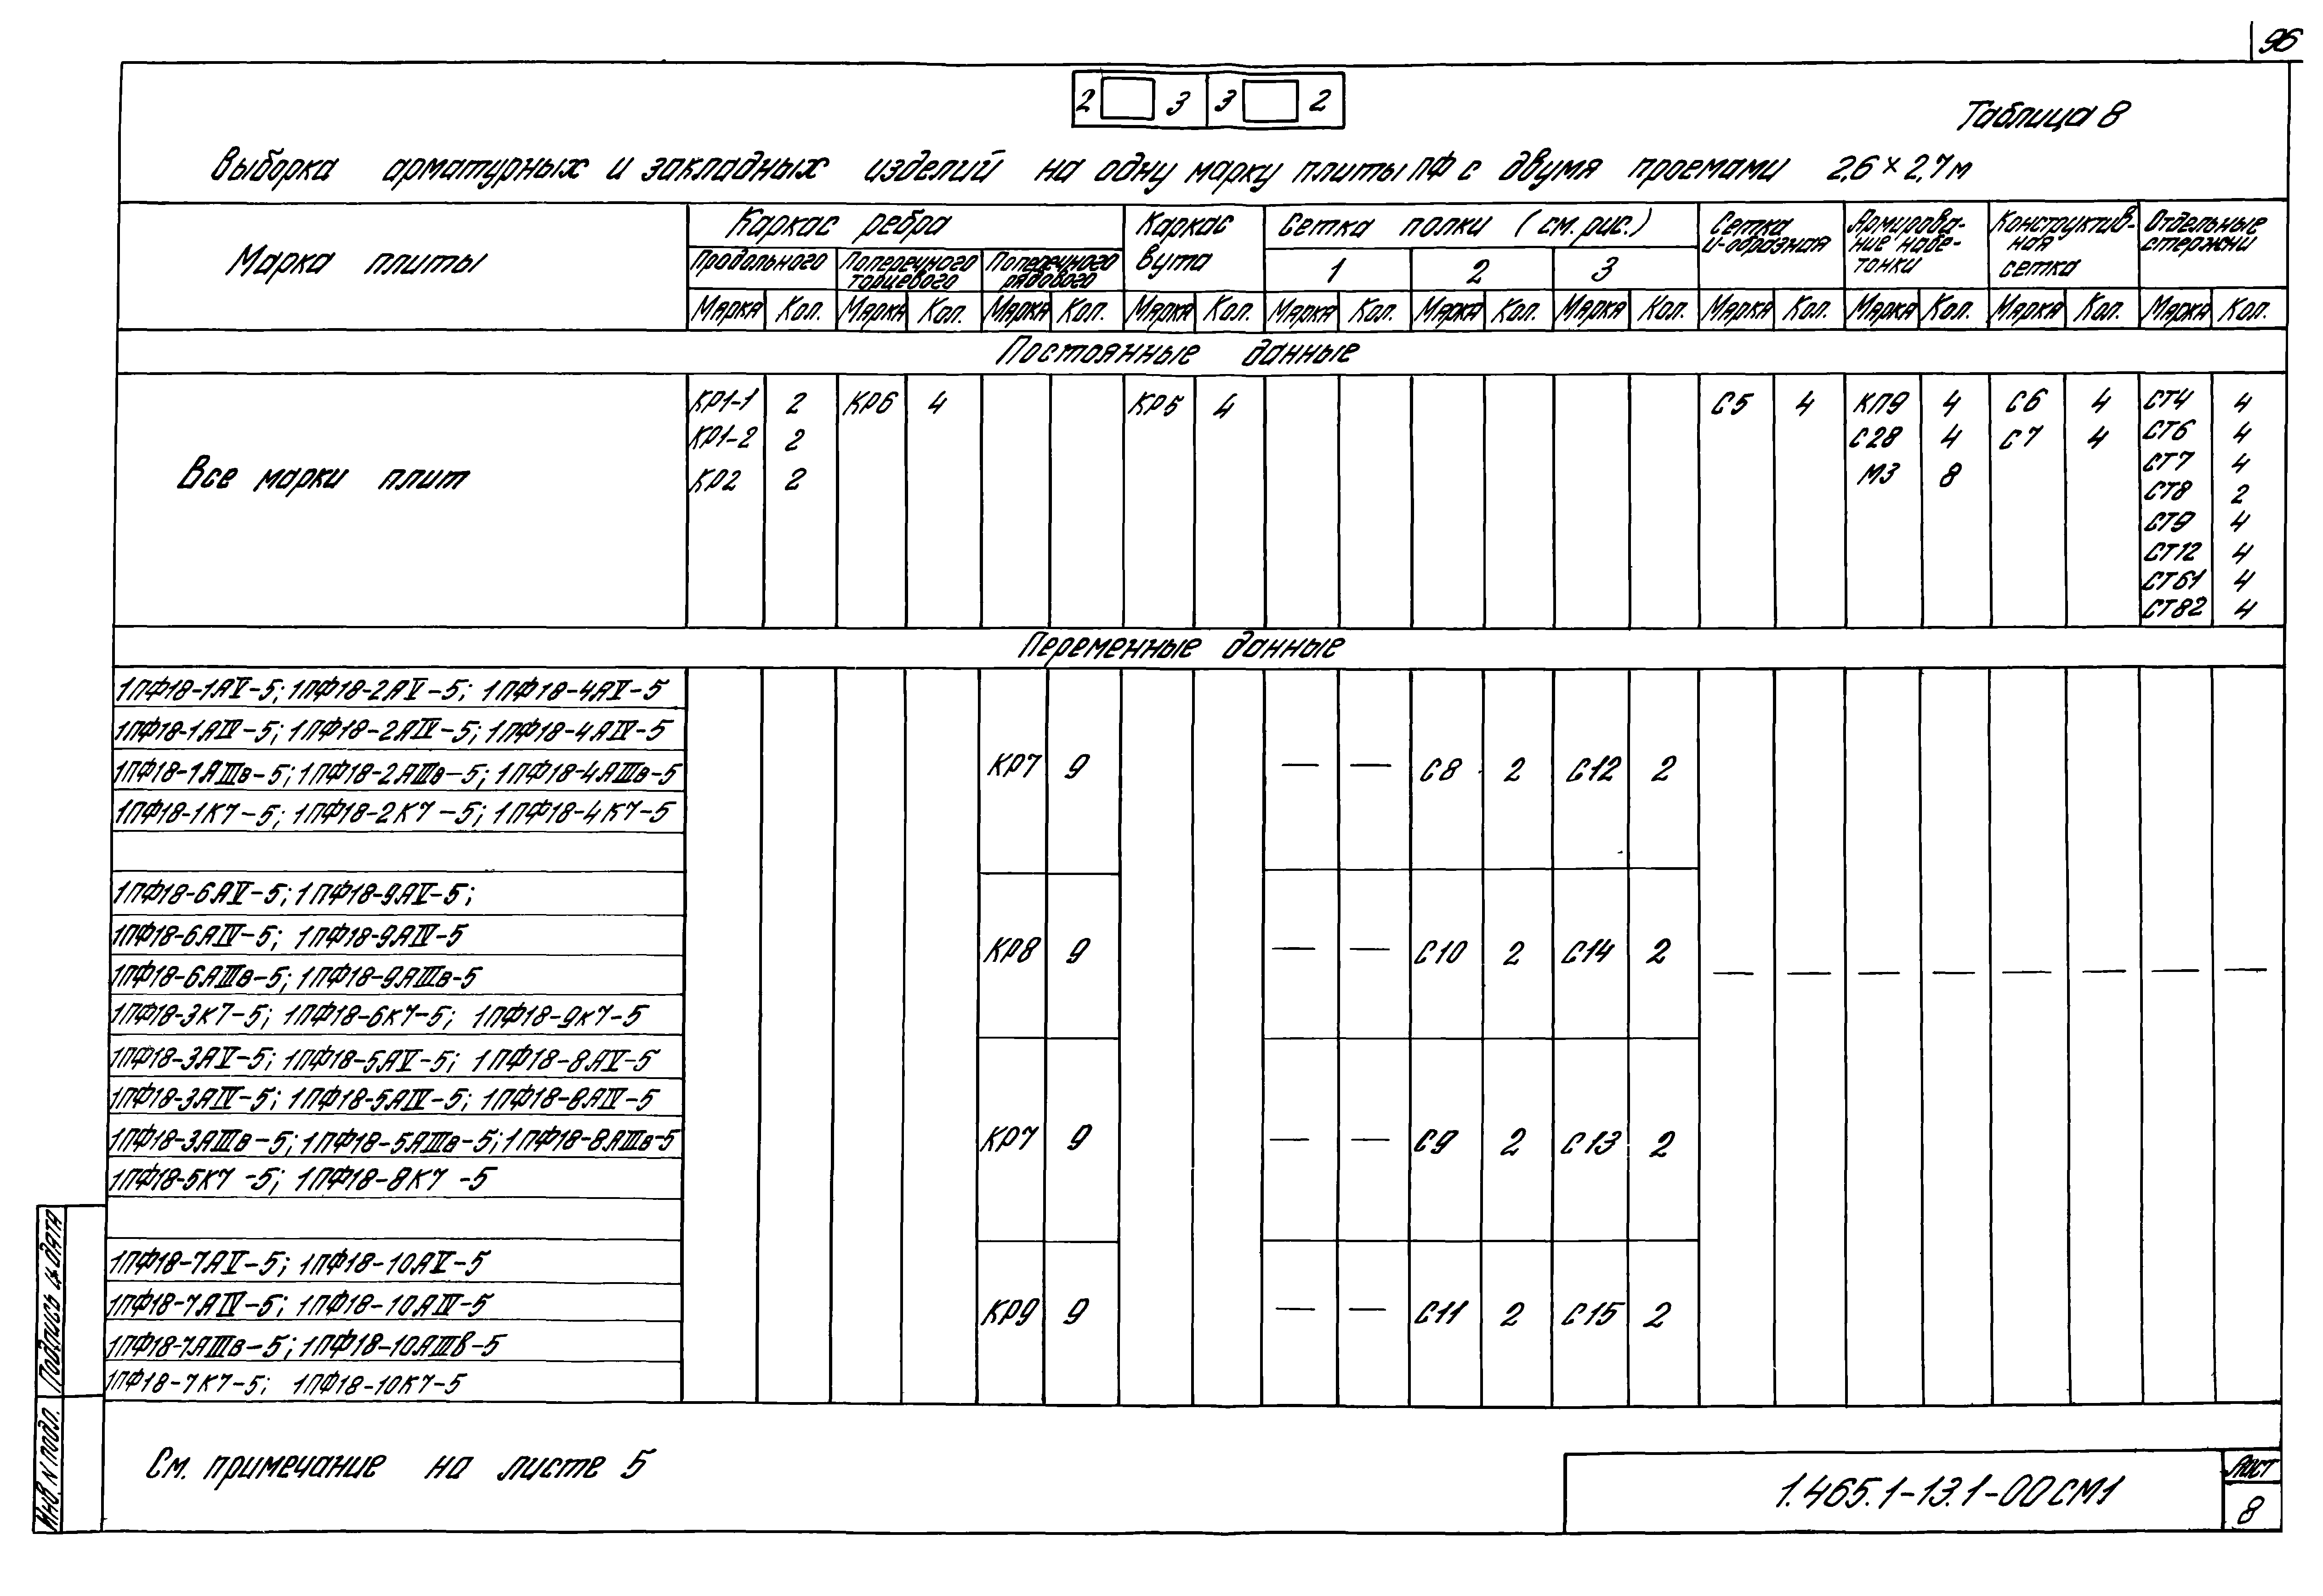 96
2 3 3 2
Таблица 8
Выборка арматурных и закладных изделий на одну марку плиты ПФ с двумя проемами 2,6×2,7м
Марка плиты
Каркас ребра
Каркас вута
Сетка полки (см. рис.)
Сетка П-образная
Армирова-
ние набе-
тонки
Конструктив-
ная
сетка
Отдельные
стержни
Продольного
Поперечного торцевого
Поперечного рядового
1 2 3
Марка Кол. Марка Кол. Марка Кол. Марка Кол. Марка Кол. Марка Кол. Марка Кол. Марка Кол. Марка Кол. Марка Кол. Марка Кол.
Постоянные данные
Все марки плит
КР1-1 2 КР6 4 КР5 4 С5 4 КП9 4 С6 4 СТ4 4
КР1-2 2 С28 4 С7 4 СТ6 4
КР2 2 М3 8 СТ7 4
СТ8 2
СТ9 4
СТ12 4
СТ61 4
СТ82 4
Переменные данные
1ПФ18-1АV-5; 1ПФ18-2АV-5; 1ПФ18-4АV-5
1ПФ18-1АIV-5; 1ПФ18-2АIV-5; 1ПФ18-4АIV-5
1ПФ18-1АIIIв-5; 1ПФ18-2АIIIв-5; 1ПФ18-4АIIIв-5
1ПФ18-1К7-5; 1ПФ18-2К7-5; 1ПФ18-4К7-5
КР7 9 — — С8 2 С12 2
1ПФ18-6АV-5; 1ПФ18-9АV-5;
1ПФ18-6АIV-5; 1ПФ18-9АIV-5
1ПФ18-6АIIIв-5; 1ПФ18-9АIIIв-5
1ПФ18-3К7-5; 1ПФ18-6К7-5; 1ПФ18-9К7-5
КР8 9 — — С10 2 С14 2
— — — — — — — —
1ПФ18-3АV-5; 1ПФ18-5АV-5; 1ПФ18-8АV-5
1ПФ18-3АIV-5; 1ПФ18-5АIV-5; 1ПФ18-8АIV-5
1ПФ18-3АIIIв-5; 1ПФ18-5АIIIв-5; 1ПФ18-8АIIIв-5
1ПФ18-5К7-5; 1ПФ18-8К7-5
КР7 9 — — С9 2 С13 2
1ПФ18-7АV-5; 1ПФ18-10АV-5
1ПФ18-7АIV-5; 1ПФ18-10АIV-5
1ПФ18-7АIIIв-5; 1ПФ18-10АIIIв-5
1ПФ18-7К7-5; 1ПФ18-10К7-5
КР9 9 — — С11 2 С15 2
См. примечание на листе 5
1.465.1-13.1-00СМ1
Лист
8
Подпись и дата
Инв. N подл.